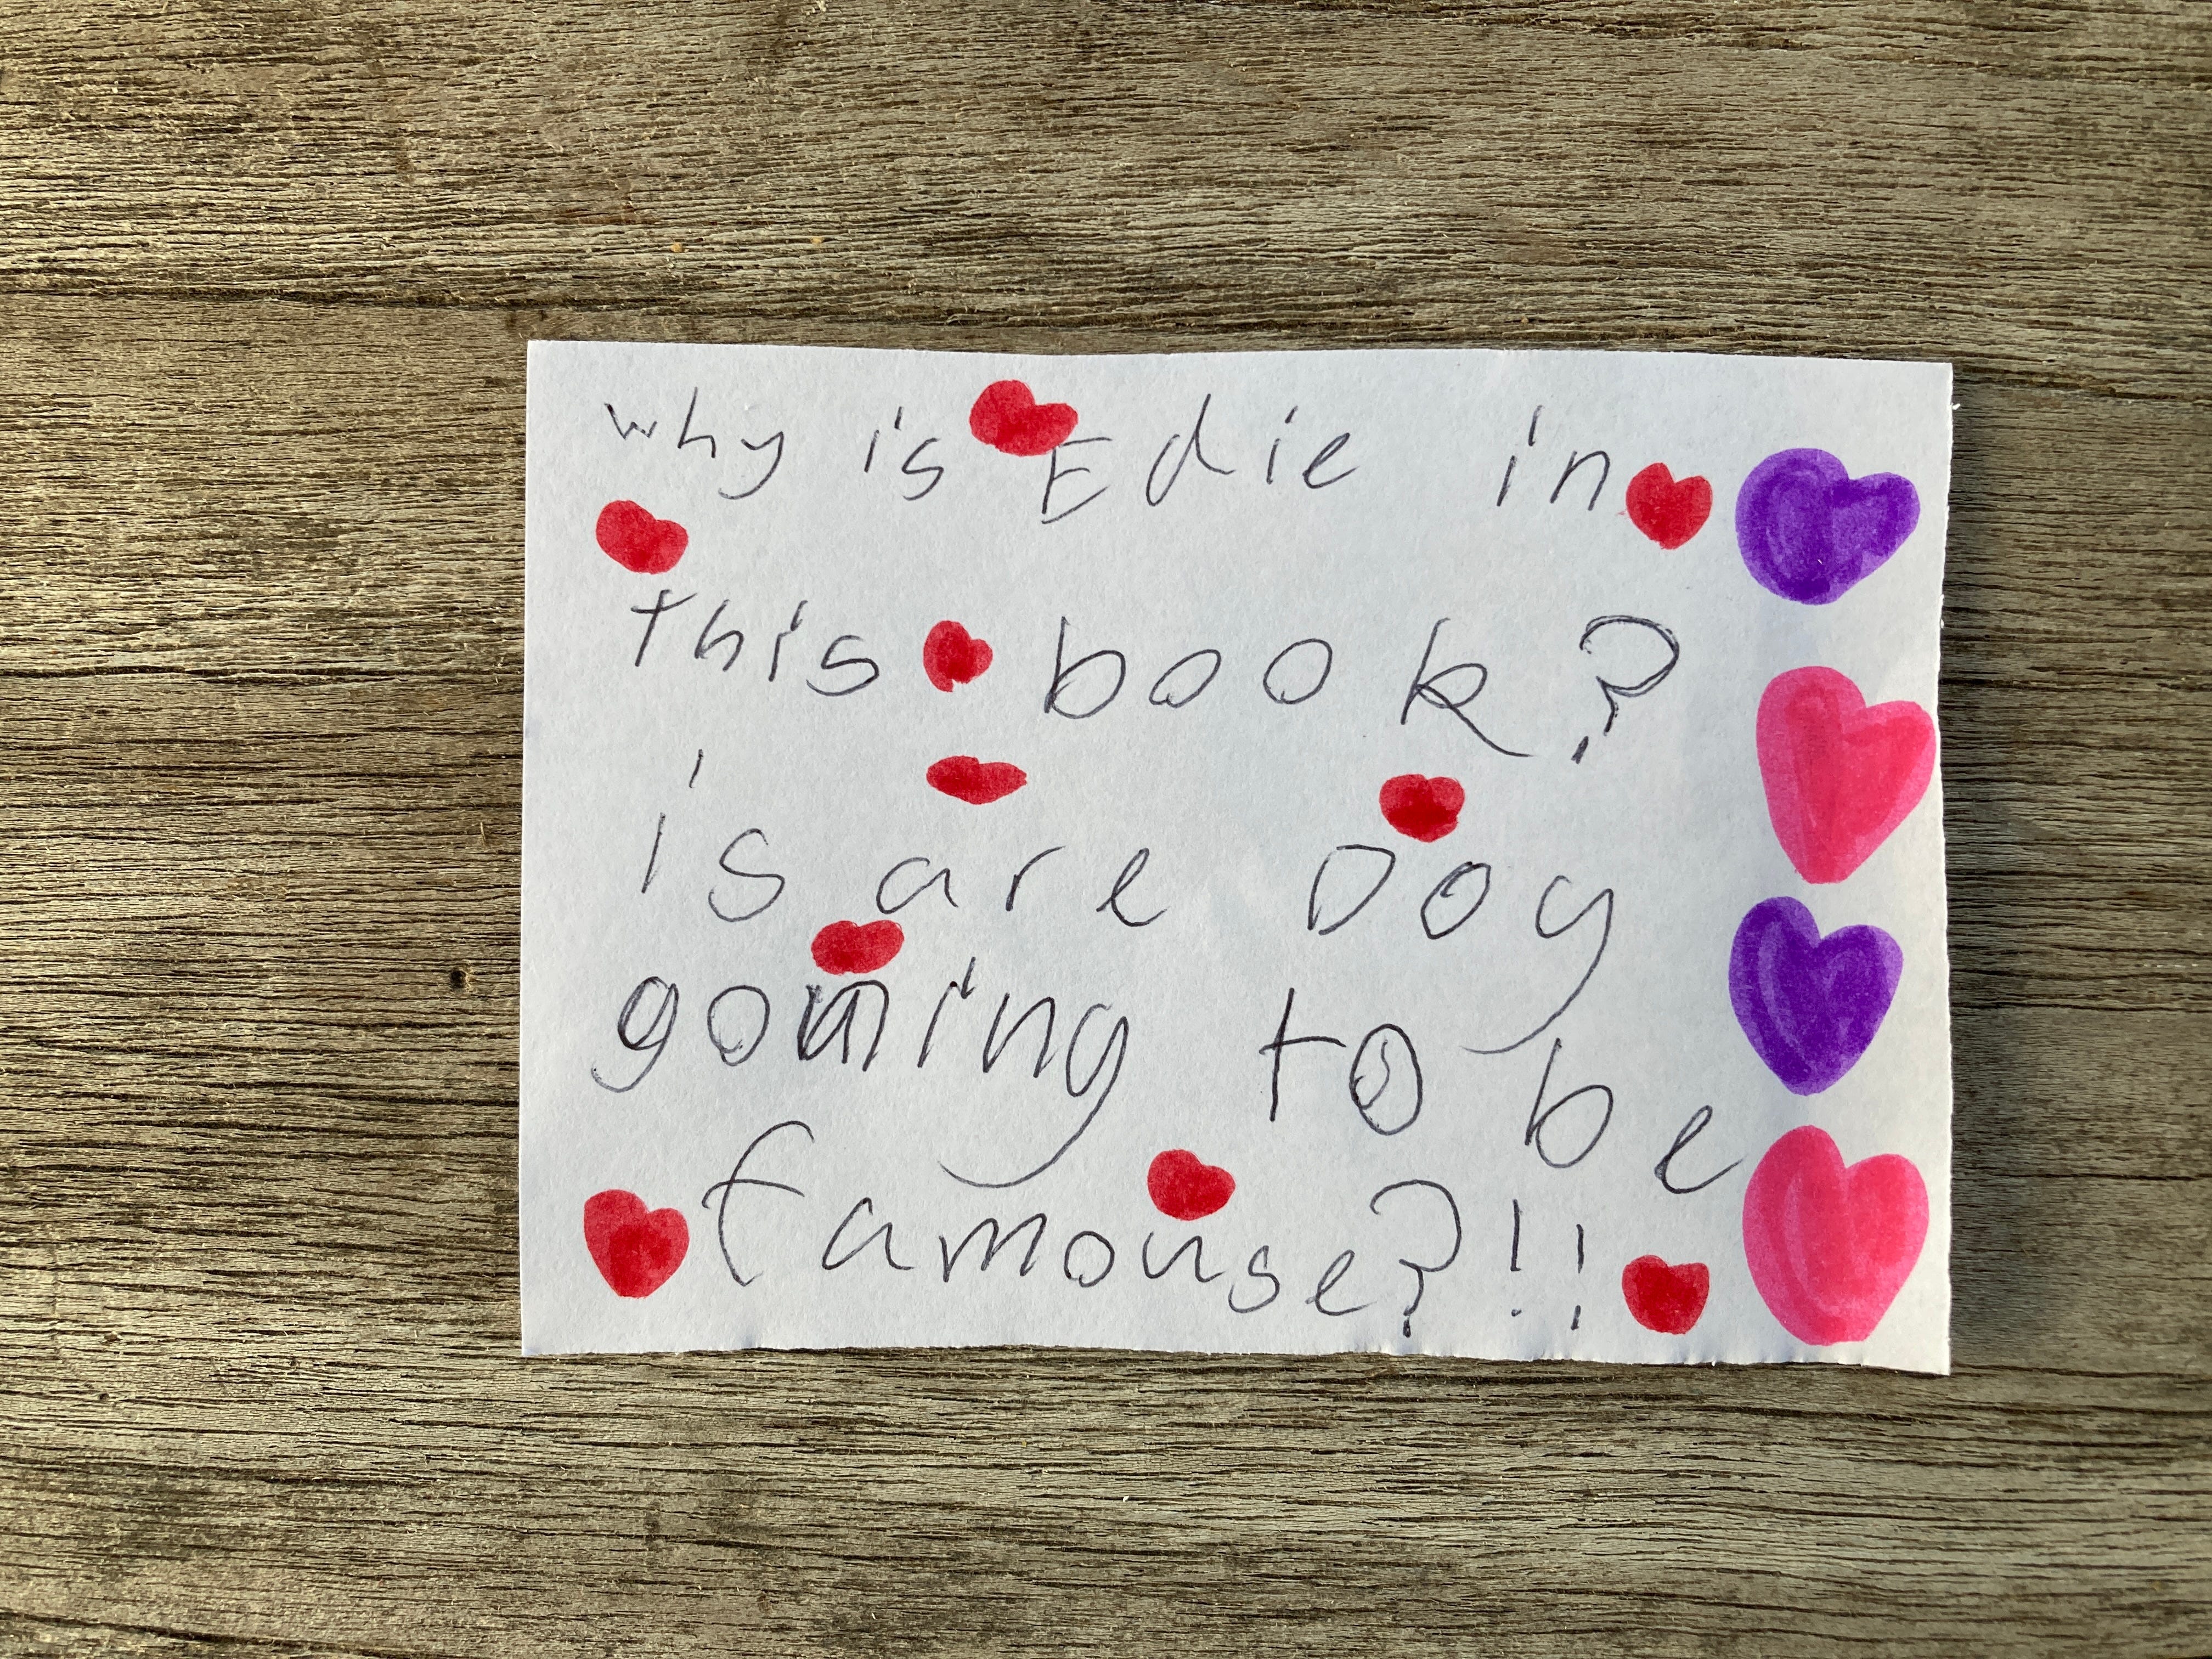 why is Edie in
this book?
is are Dog
goining to be
famouse?!!